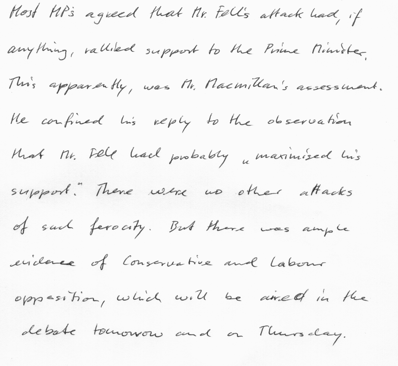 Most MPs agreed that Mr. Fell's attack had, if
anything, rallied support to the Prime Minister.
This apparently, was Mr. Macmillan's assessment.
He confined his reply to the observation
that Mr. Fell had probably „maximised his
support." There were no other attacks
of such ferocity. But there was ample
evidence of Conservative and Labour
opposition, which will be aired in the
debate tomorrow and on Thursday.